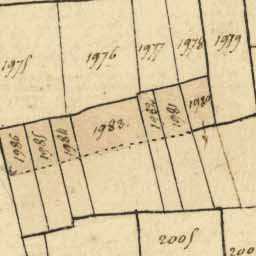 1975
1976
1977
1978
1979
1980
1981
1982
1983
1984
1985
1986
2005